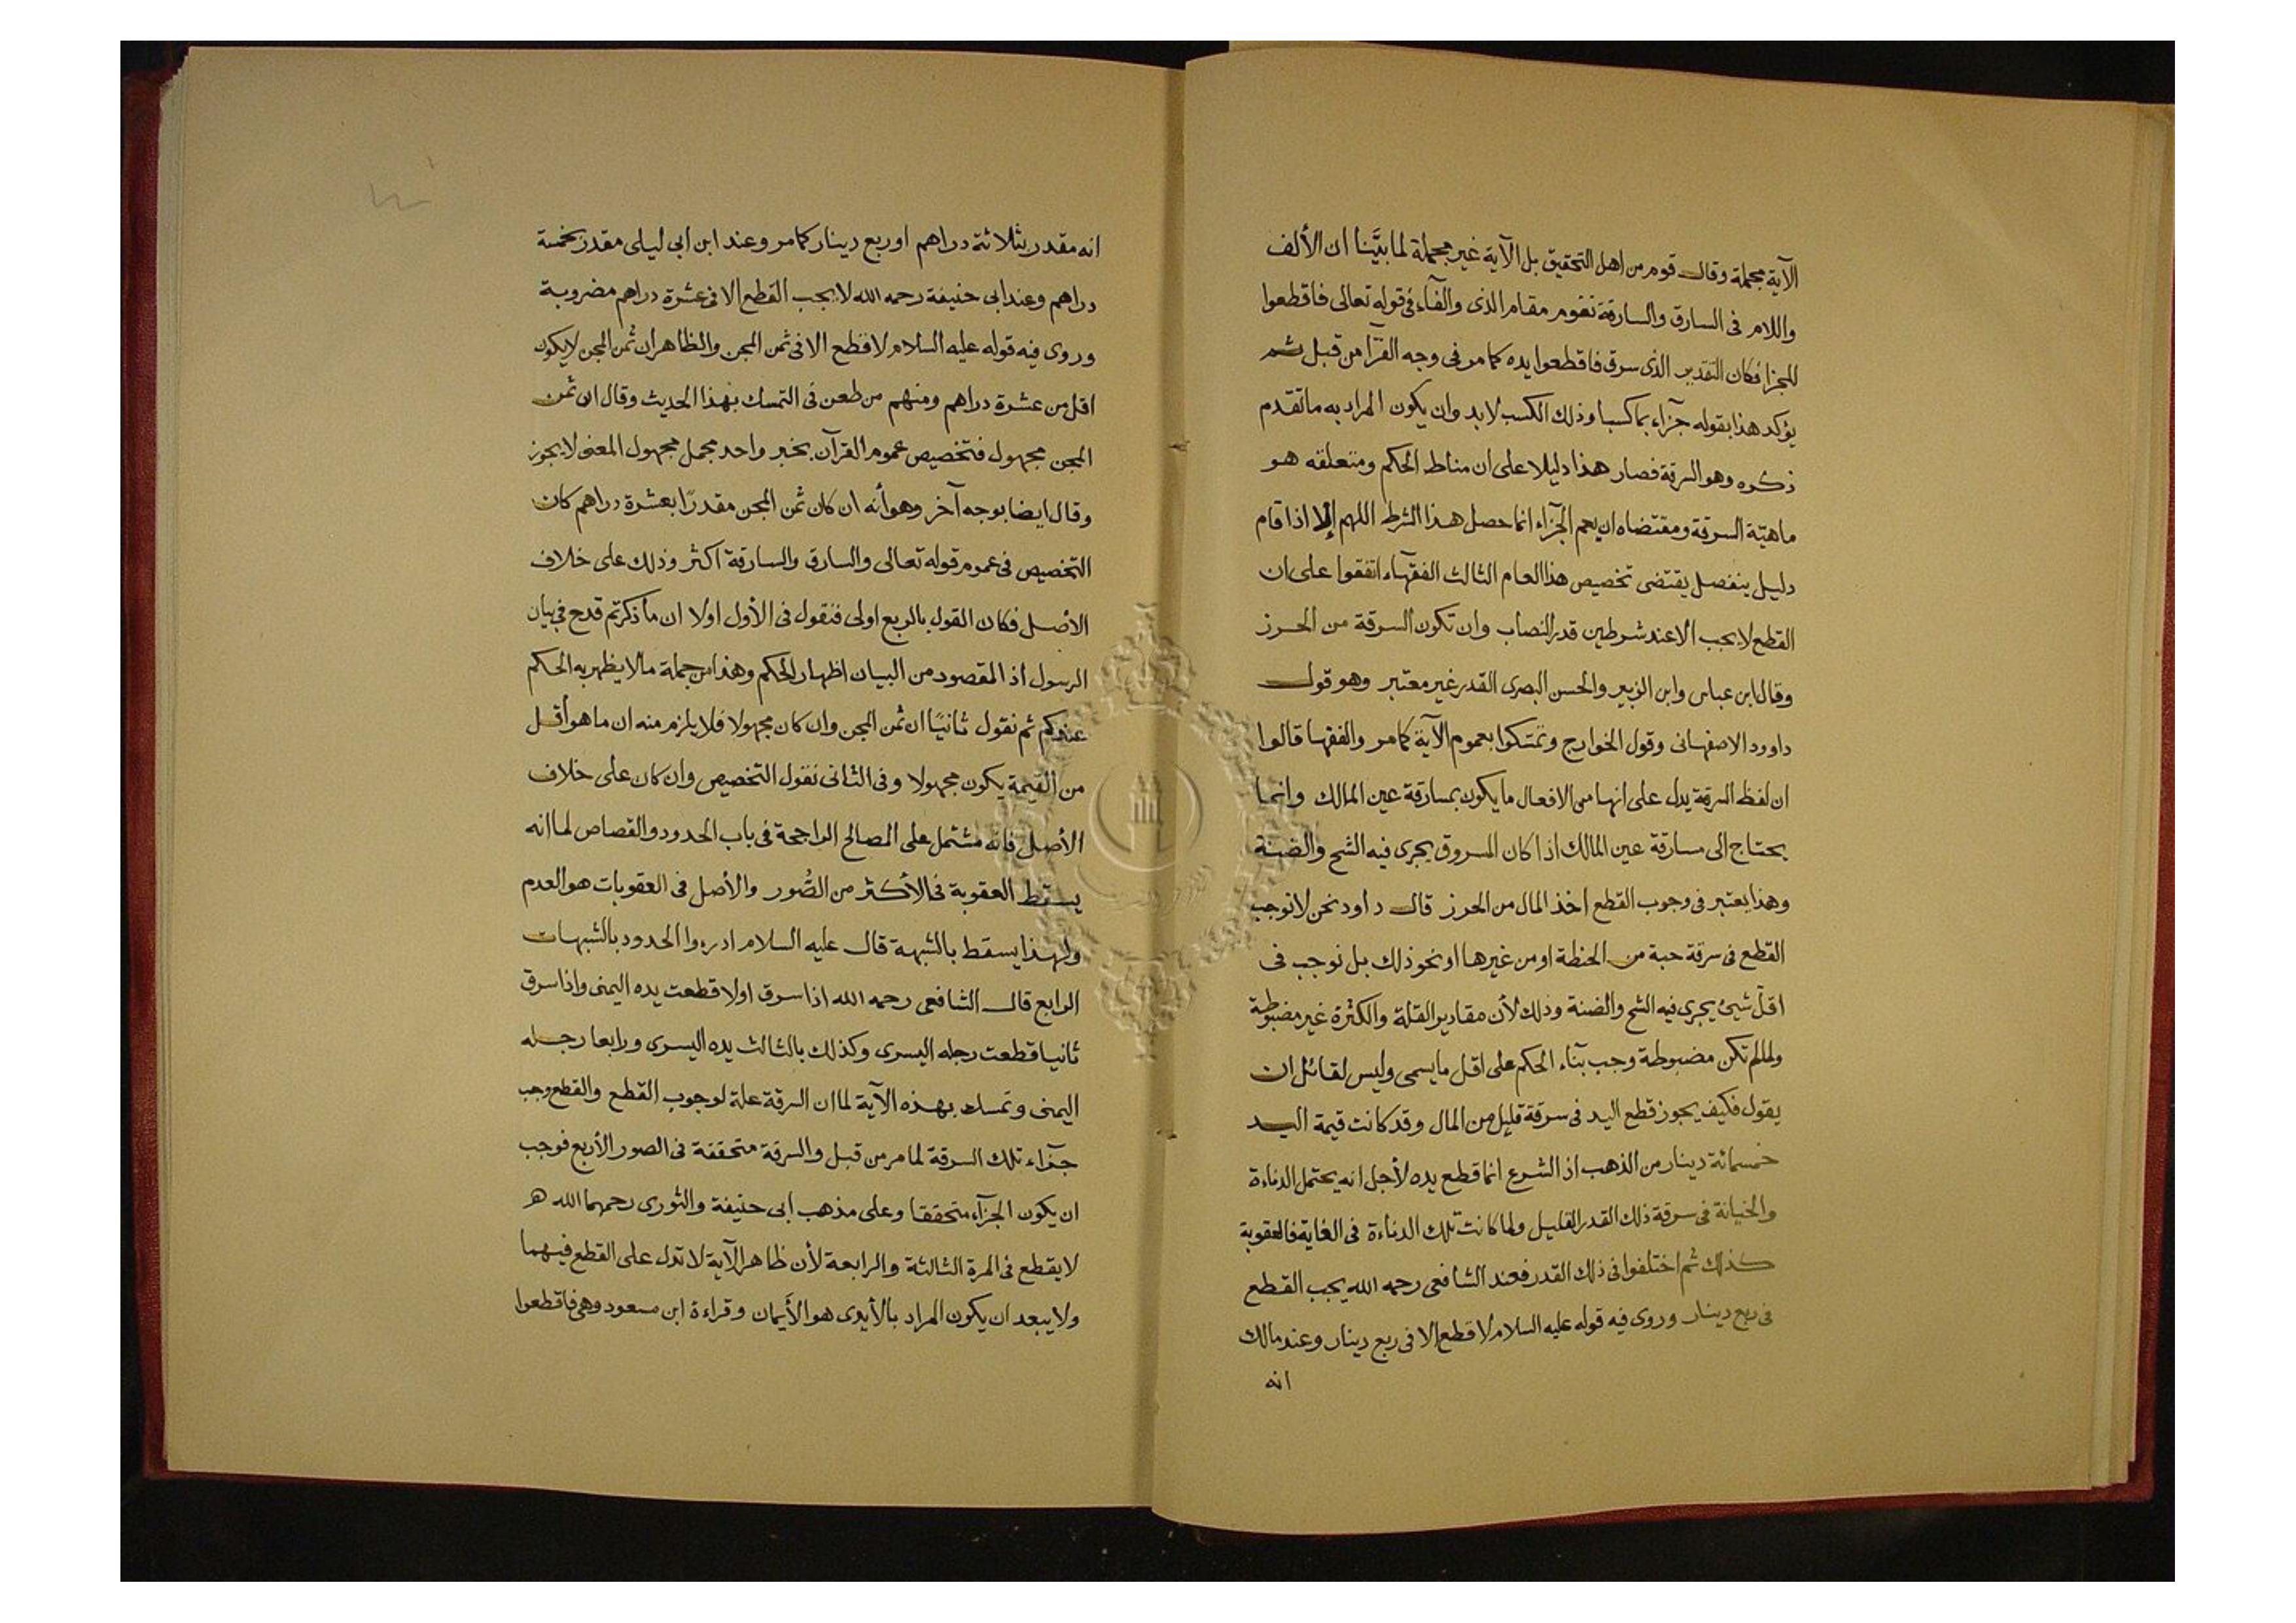 الآية مجملة وقال قوم من اهل التحقيق بل الآية غير مجملة لما بيَّنا ان الألف
واللام فى السارق والسارقة تقوم مقام الذى والفآء فى قوله تعالى فاقطعوا
للجزا فكان التقدير الذى سرق فاقطعوا يده كما مر فى وجه القرآ من قبل ثم
يؤكد هذا بقوله جزآء بما كسبا وذلك الكسب لابد وان يكون المراد به ما تقدم
ذكره وهو السرقة فصار هذا دليلا على ان مناط الحكم ومتعلقه هو
ماهية السرقة ومقتضاه ان يعم الجزآء انما حصل هذا الشرط اللهم إلا اذا قام
دليل ينفصل يقتضى تخصيص هذا العام الثالث الفقهآء اتفقوا على ان
القطع لا يجب الا عند شرطين قدر النصاب وان تكون السرقة من الحرز
وقال ابن عباس وابن الزبير والحسن البصرى القدر غير معتبر وهو قول
داوود الاصفهانى وقول الخوارج وتمسكوا بعموم الآية كما مر والفقها قالوا
ان لفظ السرقة يدل على انها من الافعال ما يكون بمسارقة عين المالك وانما
يحتاج الى مسارقة عين المالك اذا كان المسروق يجرى فيه الشح والضنة
وهذا يعتبر فى وجوب القطع اخذ المال من الحرز قال داود نحن لا نوجب
القطع فى سرقة حبة من الحنطة او من غيرها او نحو ذلك بل نوجب فى
اقلّ شئ يجرى فيه الشح والضنة وذلك لأن مقادير القلة والكثرة غير مضبوطة
ولما لم تكن مضبوطة وجب بنآء الحكم على اقل ما يسمى وليس لقائل ان
يقول فكيف يجوز قطع اليد فى سرقة قليل من المال وقد كانت قيمة اليد
خمسمائة دينار من الذهب اذ الشرع انما قطع يده لأجل انه يحتمل الدناءة
والخيانة فى سرقة ذلك القدر القليل ولما كانت تلك الدناءة فى الغاية فالعقوبة
كذلك ثم اختلفوا فى ذلك القدر فعند الشافعى رحمه الله يجب القطع
فى ربع دينار وروى فيه قوله عليه السلام لا قطع إلا فى ربع دينار وعند مالك
انه
انه مقدر بثلاثة دراهم او ربع دينار كما مر وعند ابن ابى ليلى مقدر بخمسة
دراهم وعند ابى حنيفة رحمه الله لا يجب القطع الا فى عشرة دراهم مضروبة
وروى فيه قوله عليه السلام لا قطع الا فى ثمن المجن والظاهر ان ثمن المجن لا يكون
اقل من عشرة دراهم ومنهم من طعن فى التمسك بهذا الحديث وقال ان ثمن
المجن مجهول فتخصيص عموم القرآن بخبر واحد مجمل مجهول المعنى لا يجوز
وقال ايضا بوجه آخر وهو أنه ان كان ثمن المجن مقدرًا بعشرة دراهم كان
التخصيص فى عموم قوله تعالى والسارق والسارقة اكثر وذلك على خلاف
الأصل فكان القول بالربع اولى فنقول فى الأول اولا ان ما ذكرتم قدح فى بيان
الرسول اذ المقصود من البيان اظهار الحكم وهذا من جملة ما لا يظهر به الحكم
عندكم ثم نقول ثانيًا ان ثمن المجن وان كان مجهولا فلا يلزم منه ان ما هو أقل
من القيمة يكون مجهولا وفى الثانى نقول التخصيص وان كان على خلاف
الأصل فانه مشتمل على المصالح الراجحة فى باب الحدود والقصاص لما انه
يسقط العقوبة فى الأكثر من الصُّور والأصل فى العقوبات هو العدم
ولهذا يسقط بالشبهة قال عليه السلام ادرءوا الحدود بالشبهات
الرابع قال الشافعى رحمه الله اذا سرق اولا قطعت يده اليمنى واذا سرق
ثانيا قطعت رجله اليسرى وكذلك بالثالث يده اليسرى ورابعا رجله
اليمنى وتمسك بهذه الآية لما ان السرقة علة لوجوب القطع والقطع وجب
جزآء تلك السرقة لما مر من قبل والسرقة متحققة فى الصور الأربع فوجب
ان يكون الجزآء متحققا وعلى مذهب ابى حنيفة والثورى رحمهما الله هـ
لا يقطع فى المرة الثالثة والرابعة لأن ظاهر الآية لا تدل على القطع فيهما
ولا يبعد ان يكون المراد بالأيدى هو الأَيمان وقراءة ابن مسعود وهى فاقطعوا